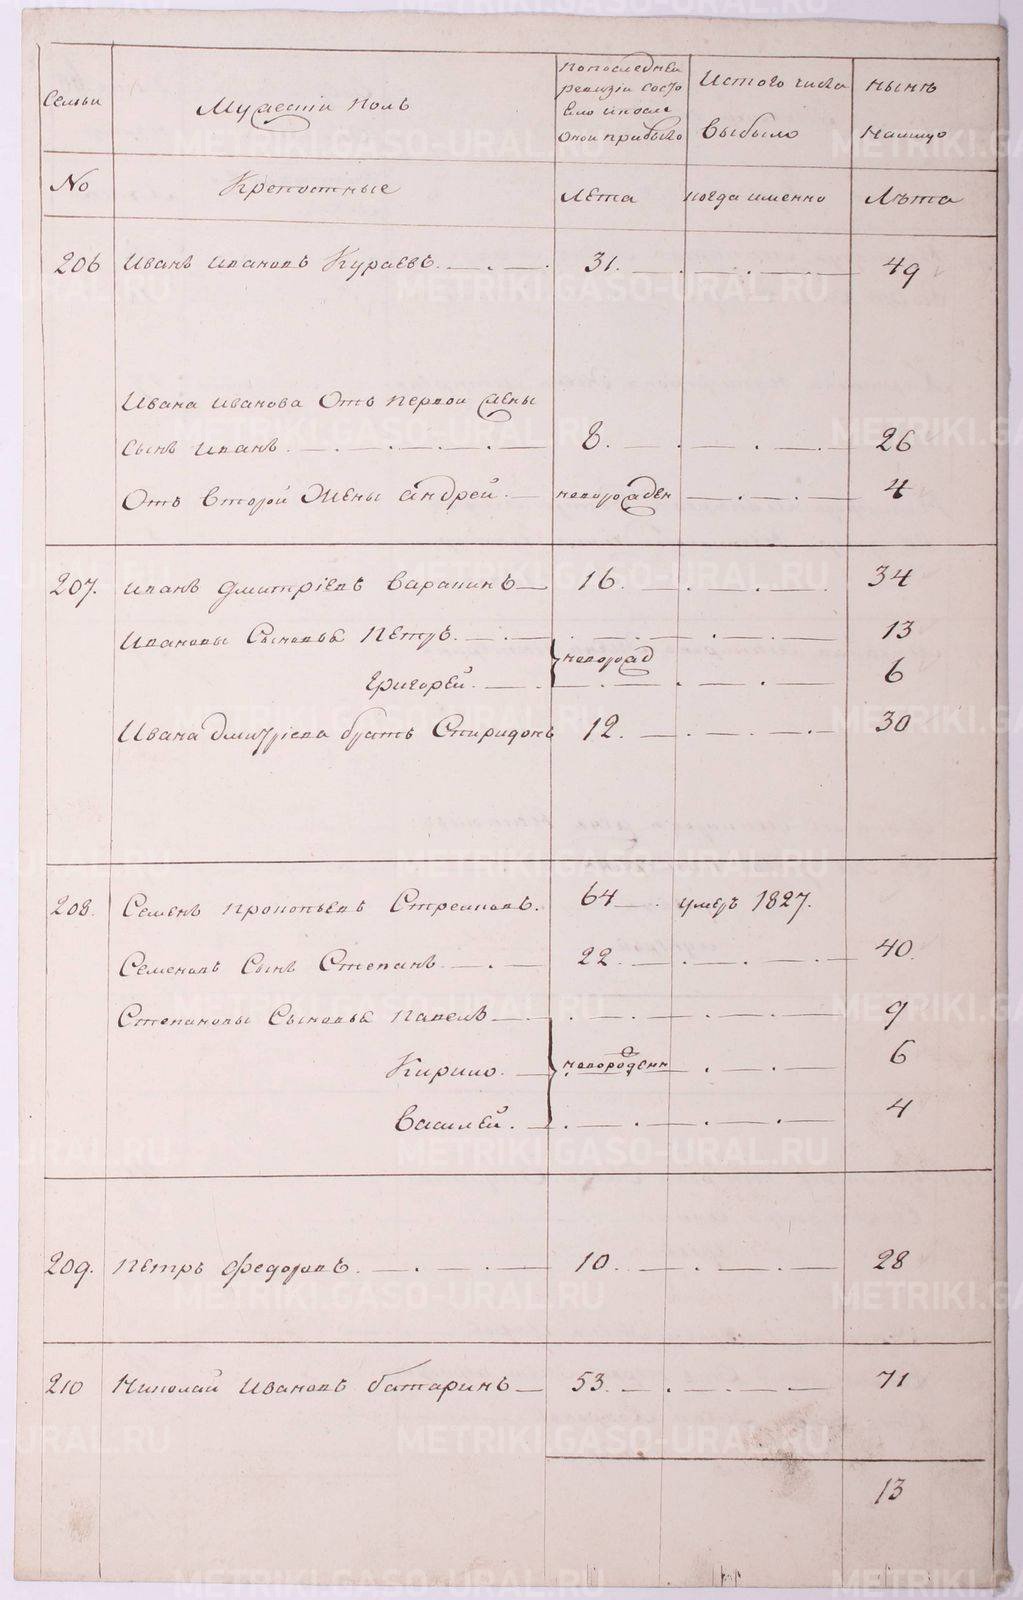 Семьи
Мужескiй полъ
По последней
ревизiи состо
яло и после
оной прибыло
Из того числа
выбыло
ныне
налицо
No
Крепостные
Лета
когда именно
Лъта
206 Иванъ Ивановъ Кураевъ. 31. 49
Ивана Иванова Отъ первой жены
сынъ Иванъ. 8. 26
Отъ второй Жены Андрей новорожден 4
207. Иванъ Дмитрiевъ Варанинъ 16. 34
Ивановы Сыновья Петръ. 13
новорожд
Григорей. 6
Ивана Дмитрiева братъ Спиридонъ 12. 30
208. Семенъ Прокопьевъ 64 умеръ 1827.
Семеновъ Сынъ Степанъ 22. 40.
Степановы Сыновья Павелъ 9
Кирило. новорожденн 6
Василей. 4
209. Петръ Федоровъ. 10. 28
210 Николай Ивановъ батаринъ 53. 71
13
METRIKI.GASO-URAL.RU